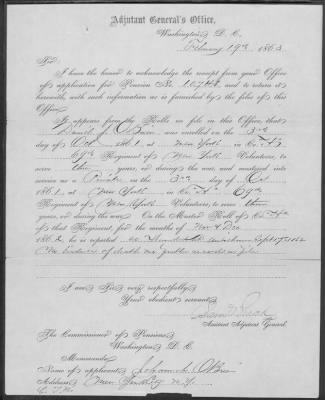 Adjutant General's Office,
Washington D. C.
February 19th 1863
Sir:
I have the honor to acknowledge the receipt from your Office
of application for Pension No. and to return it
herewith, with such information as is furnished by the files of this
Office.
It appears from the Rolls on file in this Office, that
Daniel O'Brien was enrolled on the 3rd
day of Oct 1861, at New York in Co.
69th Regiment of New York Volunteers, to
serve three years, or during the war, and mustered into
service as a Private on the 3rd day of Oct
1861, at New York in Co. 69th
Regiment of New York Volunteers, to serve three
years, or during the war. On the Muster Roll of Co.
of that Regiment, for the months of Nov & Dec
1862, he is reported Sept 17 1862
No evidence of death on file
I am Sir very respectfully
Your obedient servant
Assistant Adjutant General.
The Commissioner of Pensions
Washington D. C.
Memoranda
Name of applicant Johanna O'Brien
Address New York City N.Y.